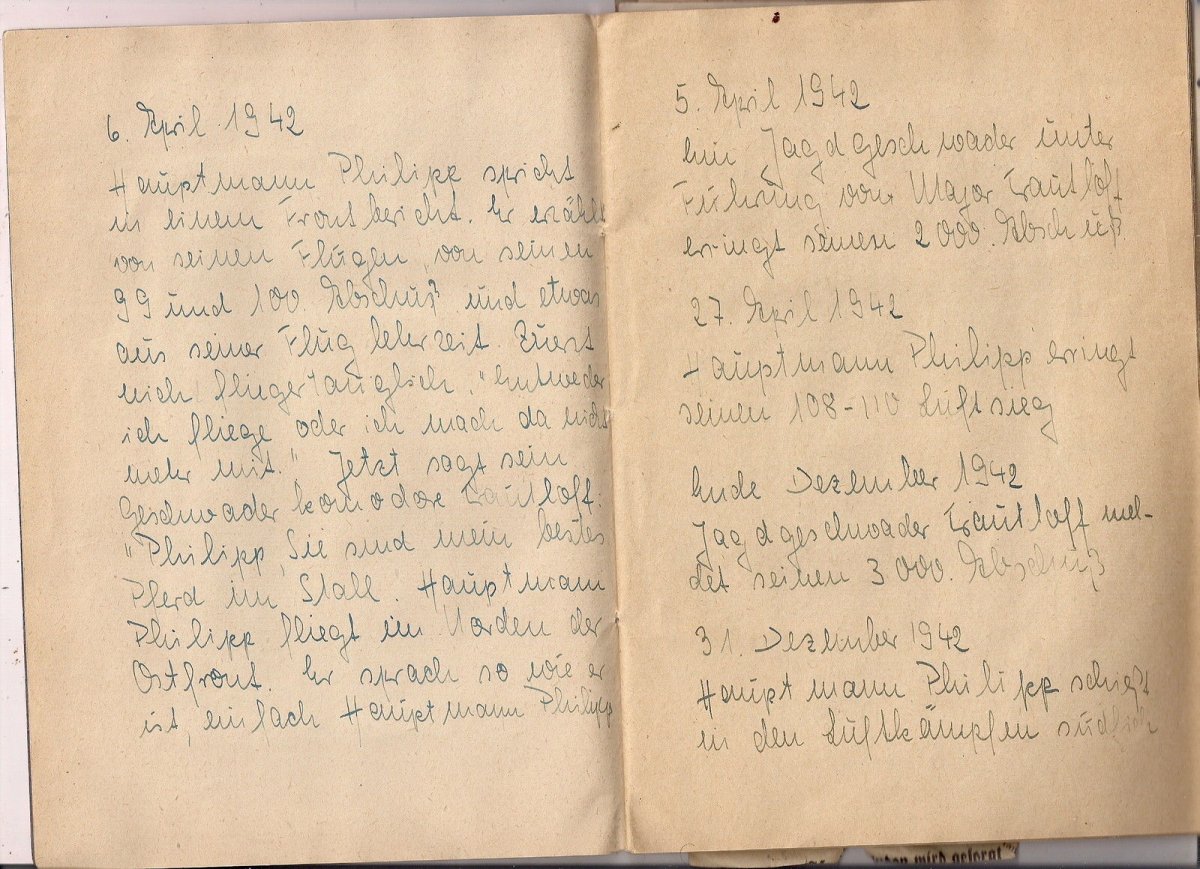 6. April 1942
Hauptmann Philipp spricht
in einem Frontbericht. Er erzählt
von seinen Flügen, von seinen
99 und 100. Abschuß und etwas
aus seiner Fluglehrzeit. Zuerst
nich fliegertauglich, "Entweder
ich fliege oder ich mach da nicht
mehr mit." Jetzt sagt sein
Geschwaderkomodore Trautloff.
"Philipp, Sie sind mein bestes
Pferd im Stall. Hauptmann
Philipp fliegt im Norden der
Ostfront. Er sprach so wie er
ist, einfach Hauptmann Philipp
5. April 1942
Ein Jagdgeschwader unter
Führung von Major Trautloft
erringt seinen 2000. Abschuß
27. April 1942
Hauptmann Philipp erringt
seinen 108-110 Luftsieg
Ende Dezember 1942
Jagdgeschwader Trautloff mel-
det seinen 3000. Abschuß
31. Dezember 1942
Hauptmann Philipp schießt
in den Luftkämpfen südlich
wird gesorgt"